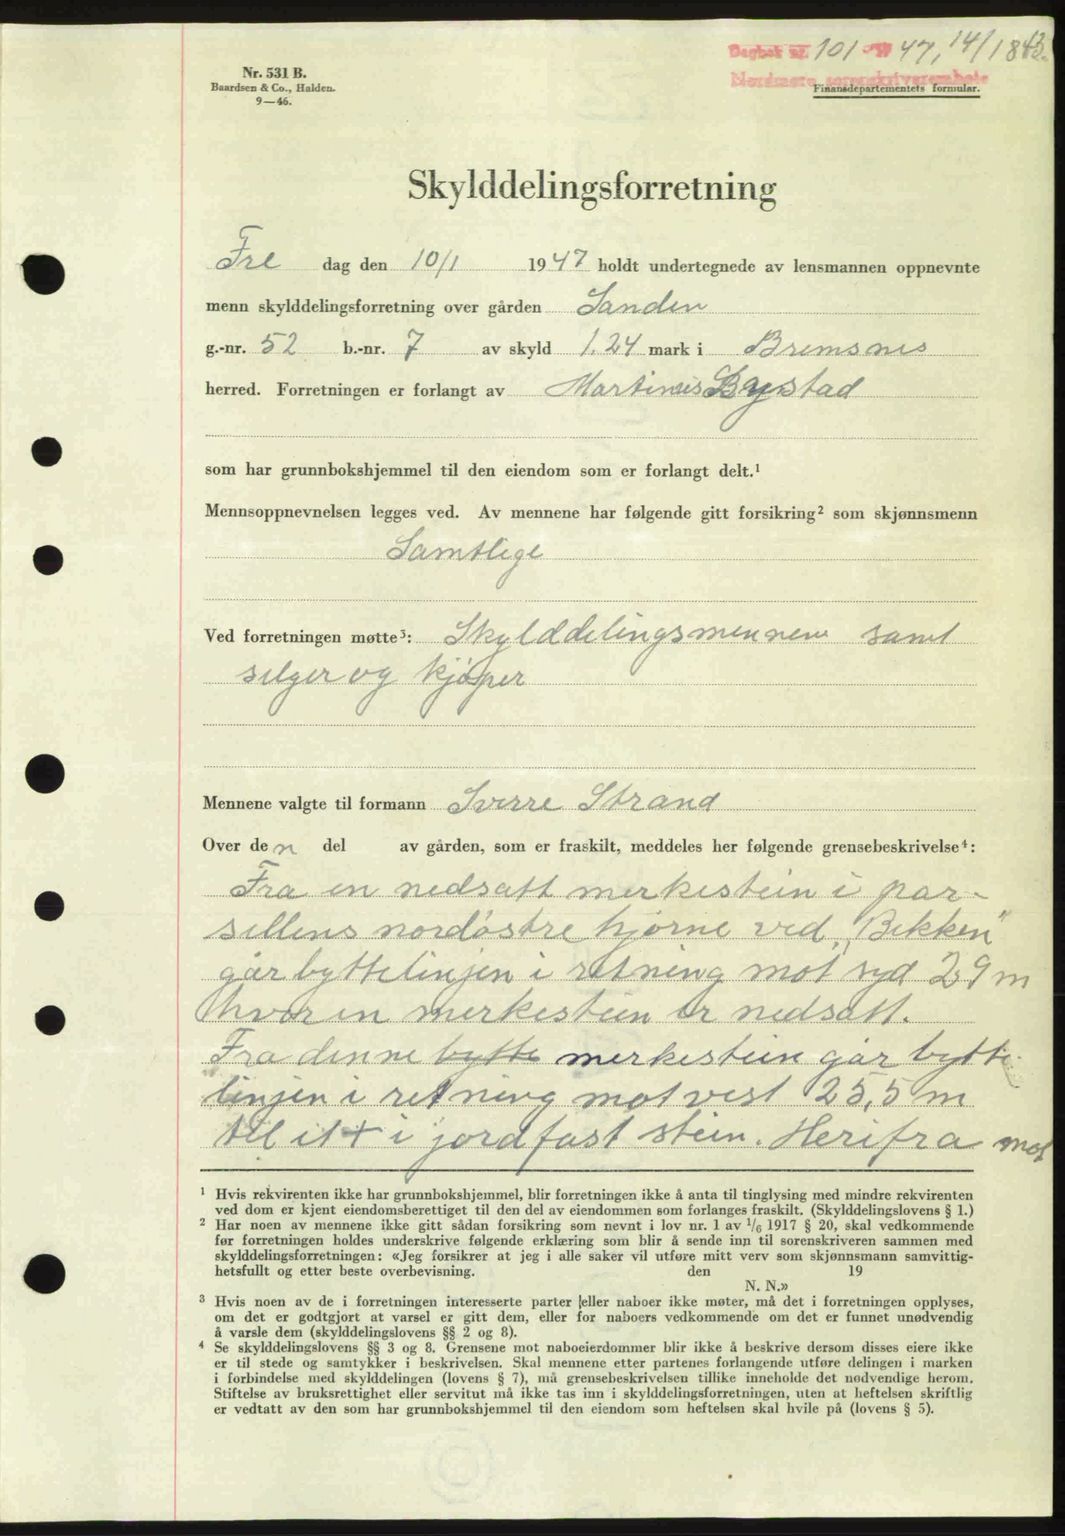 Dagbok nr. 101 19 47, 14/1 843.
Nordmøre sorenskriverembete
Nr. 531 B.
Baardsen & Co., Halden.
9—46.
Finansdepartementets formular.
Skylddelingsforretning
Fre dag den 10/1 1947 holdt undertegnede av lensmannen oppnevnte
menn skylddelingsforretning over gården Sanden
g.-nr. 52 b.-nr. 7 av skyld 1.24 mark i Bremsnes
herred. Forretningen er forlangt av Martinus Bystad
som har grunnbokshjemmel til den eiendom som er forlangt delt.¹
Mennsoppnevnelsen legges ved. Av mennene har følgende gitt forsikring² som skjønnsmenn
Samtlige
Ved forretningen møtte³: Skylddelingsmennene samt
selger og kjøper
Mennene valgte til formann Sverre Strand
Over den del av gården, som er fraskilt, meddeles her følgende grensebeskrivelse⁴:
Fra en nedsatt merkestein i par-
sellens nordøstre hjørne ved „Bekken"
går byttelinjen i retning mot syd 29 m
hvor en merkestein er nedsatt.
Fra denne bytte merkestein går bytte-
linjen i retning mot vest 25,5 m
til et + i jordfast stein. Herifra mot
¹ Hvis rekvirenten ikke har grunnbokshjemmel, blir forretningen ikke å anta til tinglysing med mindre rekvirenten
ved dom er kjent eiendomsberettiget til den del av eiendommen som forlanges fraskilt. (Skylddelingslovens § 1.)
² Har noen av mennene ikke gitt sådan forsikring som nevnt i lov nr. 1 av 1/6 1917 § 20, skal vedkommende
før forretningen holdes underskrive følgende erklæring som blir å sende inn til sorenskriveren sammen med
skylddelingsforretningen: «Jeg forsikrer at jeg i alle saker vil utføre mitt verv som skjønnsmann samvittig-
hetsfullt og etter beste overbevisning. den 19
N. N.»
³ Hvis noen av de i forretningen interesserte parter eller naboer ikke møter, må det i forretningen opplyses,
om det er godtgjort at varsel er gitt dem, eller for naboers vedkommende om det er funnet unødvendig
å varsle dem (skylddelingslovens §§ 2 og 8).
⁴ Se skylddelingslovens §§ 3 og 8. Grensene mot naboeierdommer blir ikke å beskrive dersom disses eiere ikke
er til stede og samtykker i beskrivelsen. Skal mennene etter partenes forlangende utføre delingen i marken
i forbindelse med skylddelingen (lovens § 7), må grensebeskrivelsen tillike inneholde det nødvendige herom.
Stiftelse av bruksrettighet eller servitut må ikke tas inn i skylddelingsforretningen, uten at heftelsen skriftlig
er vedtatt av den som har grunnbokshjemmel til den eiendom som heftelsen skal hvile på (lovens § 5).